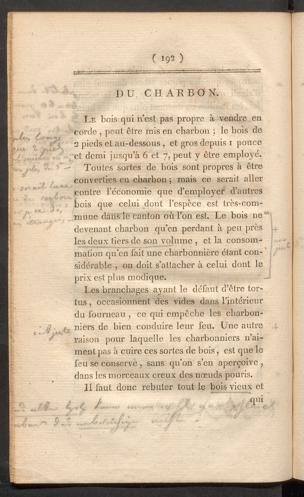 ( 192 )
DU CHARBON.
LE bois qui n'est pas propre à vendre en
corde, peut être mis en charbon; le bois de
2 pieds et au-dessous, et gros depuis 1 pouce
et demi jusqu'à 6 et 7, peut y être employé.
Toutes sortes de bois sont propres à être
converties en charbon; mais ce serait aller
contre l'économie que d'employer d'autres
bois que celui dont l'espèce est très-com-
mune dans le canton où l'on est. Le bois ne
devenant charbon qu'en perdant à peu près
les deux tiers de son volume, et la consom-
mation qu'en fait une charbonnière étant con-
sidérable, on doit s'attacher à celui dont le
prix est plus modique.
Les branchages ayant le défaut d'être tor-
tus, occasionnent des vides dans l'intérieur
du fourneau, ce qui empêche les charbon-
niers de bien conduire leur feu. Une autre
raison pour laquelle les charbonniers n'ai-
ment pas à cuire ces sortes de bois, est que le
feu se conserve, sans qu'on s'en aperçoive,
dans les morceaux creux des nœuds pouris.
Il faut donc rebuter tout le bois vieux et
qui